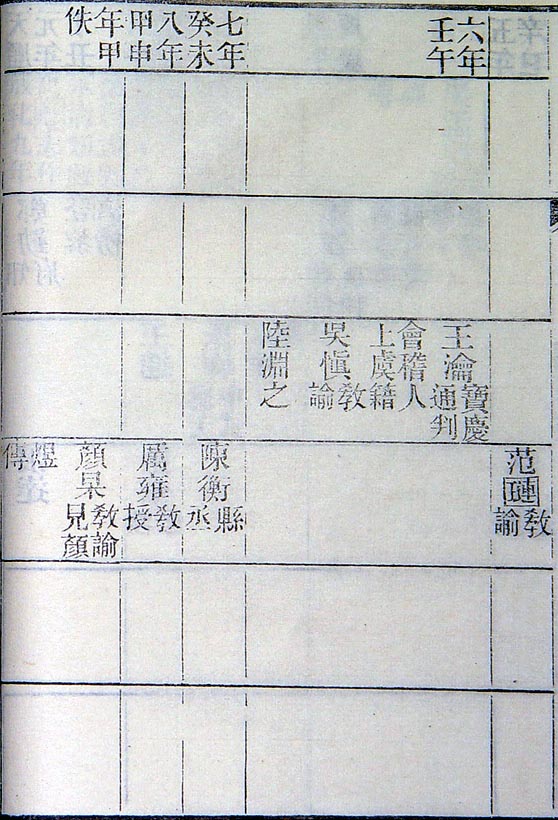 范
教
諭
六年
壬午
王瀹
寶慶
通判
會稽人
上虞籍
吳愼
教
諭
陸淵之
七年
癸未
陳衡
縣
丞
八年
甲申
厲雍
教
授
年甲
佚
顏杲
教諭
見顏
煜
傳